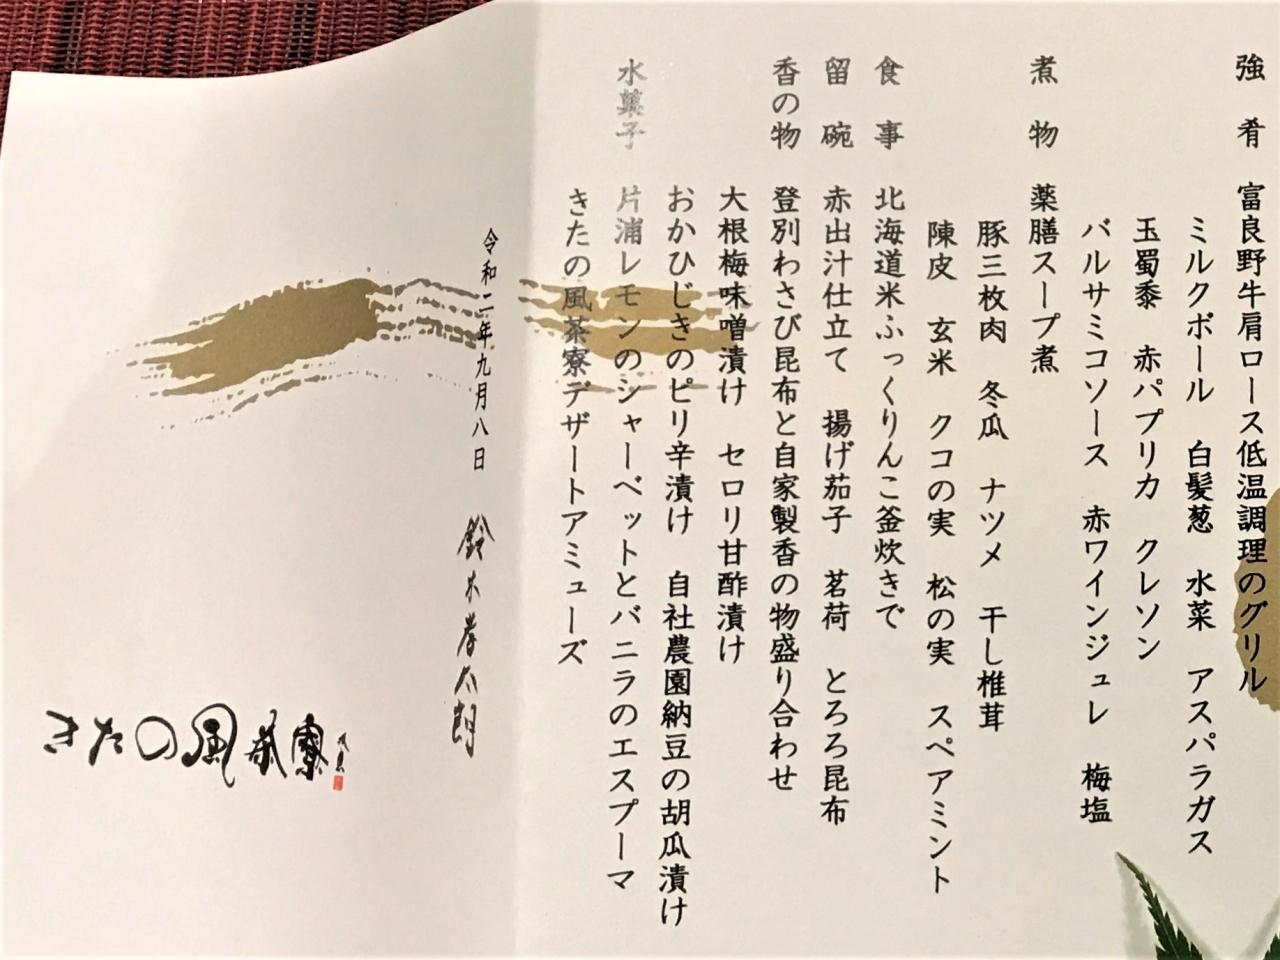 強 肴 富良野牛肩ロース低温調理のグリル
ミルクボール 白髪葱 水菜 アスパラガス
玉蜀黍 赤パプリカ クレソン
バルサミコソース 赤ワインジュレ 梅塩
煮 物 薬膳スープ煮
豚三枚肉 冬瓜 ナツメ 干し椎茸
陳皮 玄米 クコの実 松の実 スペアミント
食 事 北海道米ふっくりんこ釜炊きで
留 碗 赤出汁仕立て 揚げ茄子 茗荷 とろろ昆布
香の物 登別わさび昆布と自家製香の物盛り合わせ
大根梅味噌漬け セロリ甘酢漬け
おかひじきのピリ辛漬け 自社農園納豆の胡瓜漬け
水菓子 片浦レモンのシャーベットとバニラのエスプーマ
きたの風茶寮デザートアミューズ
令和二年九月八日 鈴木孝太朗
きたの風茶寮